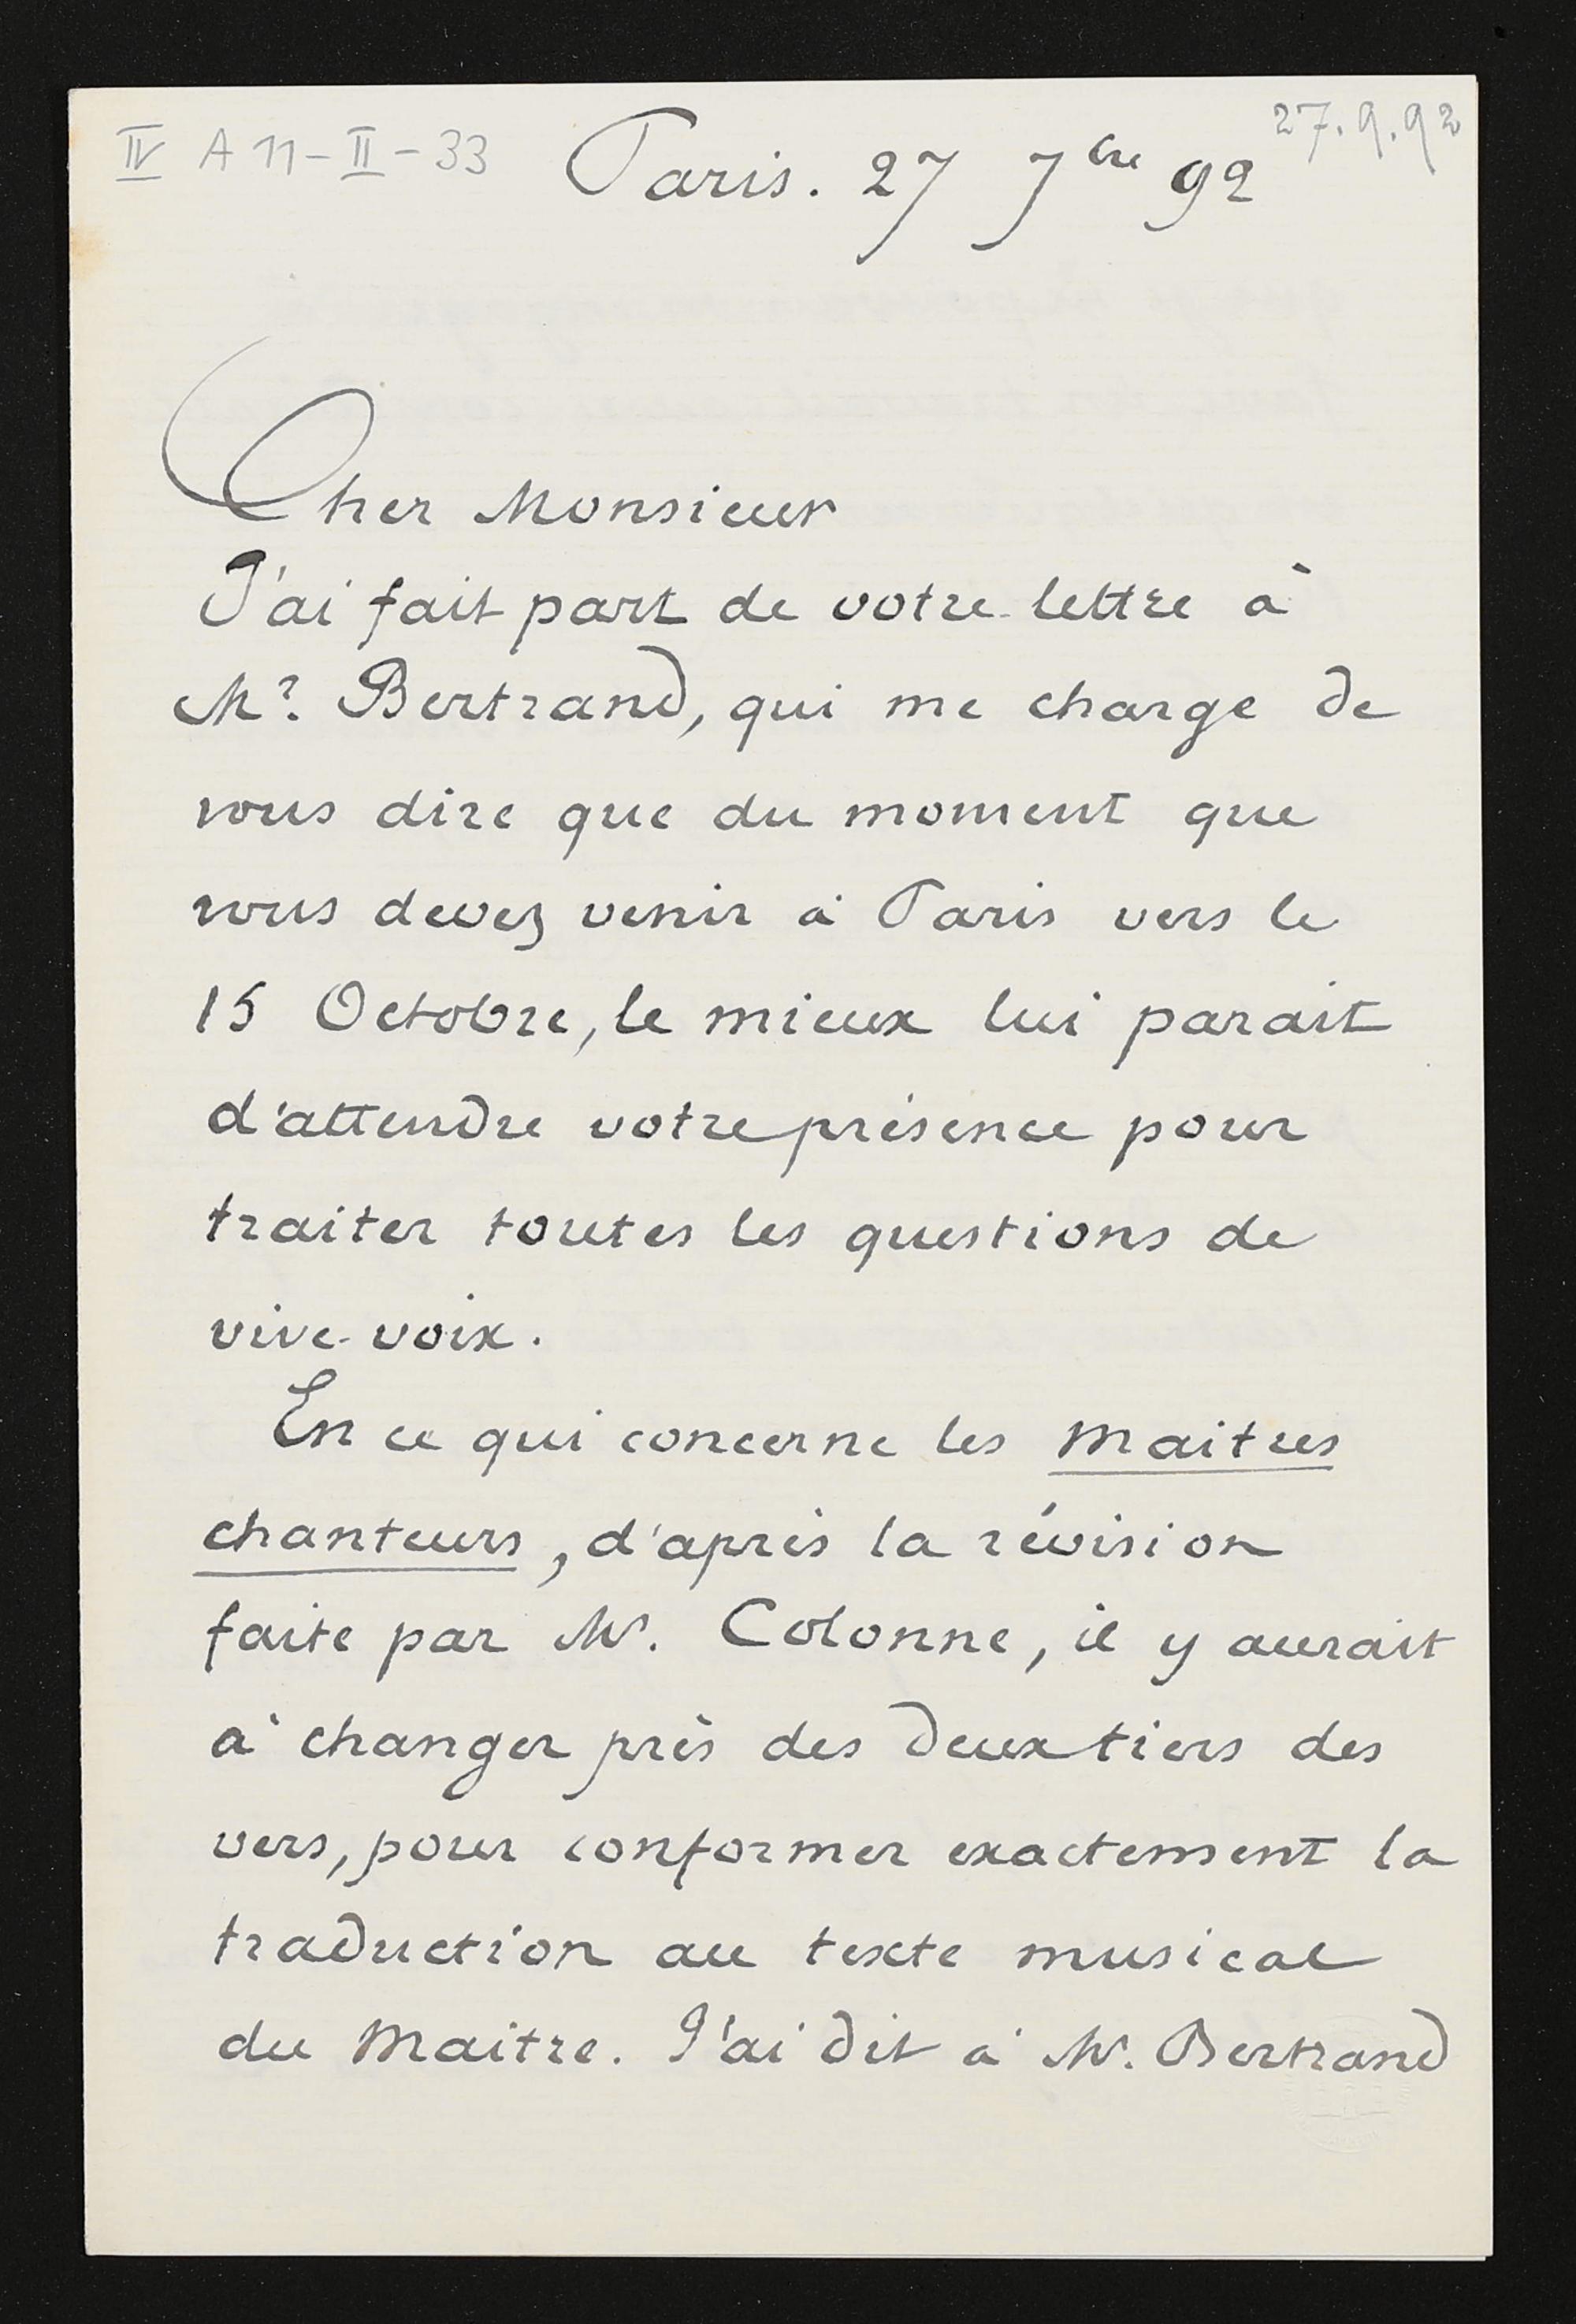 IV A 11-II-33
27.9.92
Paris. 27 7bre 92
Cher Monsieur
J'ai fait part de votre lettre à
Mr. Bertrand, qui me charge de
vous dire que du moment que
vous devez venir à Paris vers le
15 Octobre, le mieux lui parait
d'attendre votre présence pour
traiter toutes les questions de
vive-voix.
En ce qui concerne les Maitres
chanteurs, d'après la révision
faite par Mr. Colonne, il y aurait
à changer près des deux tiers des
vers, pour conformer exactement la
traduction au texte musical
du Maitre. J'ai dit à Mr. Bertrand